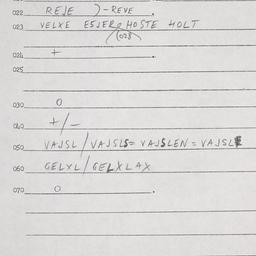 022 REJE )-REVE .
023 VELXE ESJERO HOSTE HOLT
(023)
024 +
025
030 0
040 +/-
050 VAJSL/VAJSLS= VAJSLEN = VAJSLE
060 GELXL/GELXLAX
070 0 .